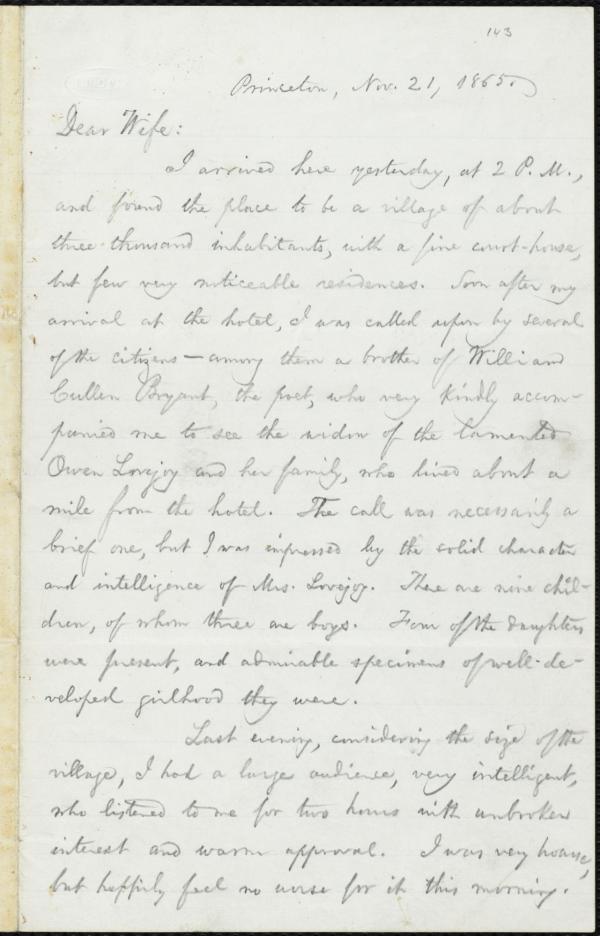 143
Princeton, Nov. 21, 1865.
Dear Wife:
I arrived here yesterday, at 2 P. M.,
and found the place to be a village of about
three thousand inhabitants, with a fine court-house,
but few very noticeable residences. Soon after my
arrival at the hotel, I was called upon by several
of the citizens — among them a brother of William
Cullen Bryant, the poet, who very kindly accom-
panied me to see the widow of the lamented
Owen Lovejoy and her family, who lived about a
mile from the hotel. The call was necessarily a
brief one, but I was impressed by the solid character
and intelligence of Mrs. Lovejoy. There are nine chil-
dren, of whom three are boys. Four of the daughters
were present, and admirable specimens of well-de-
veloped girlhood they were.
Last evening, considering the size of the
village, I had a large audience, very intelligent,
who listened to me for two hours with unbroken
interest and warm approval. I was very hoarse,
but happily feel no worse for it this morning.